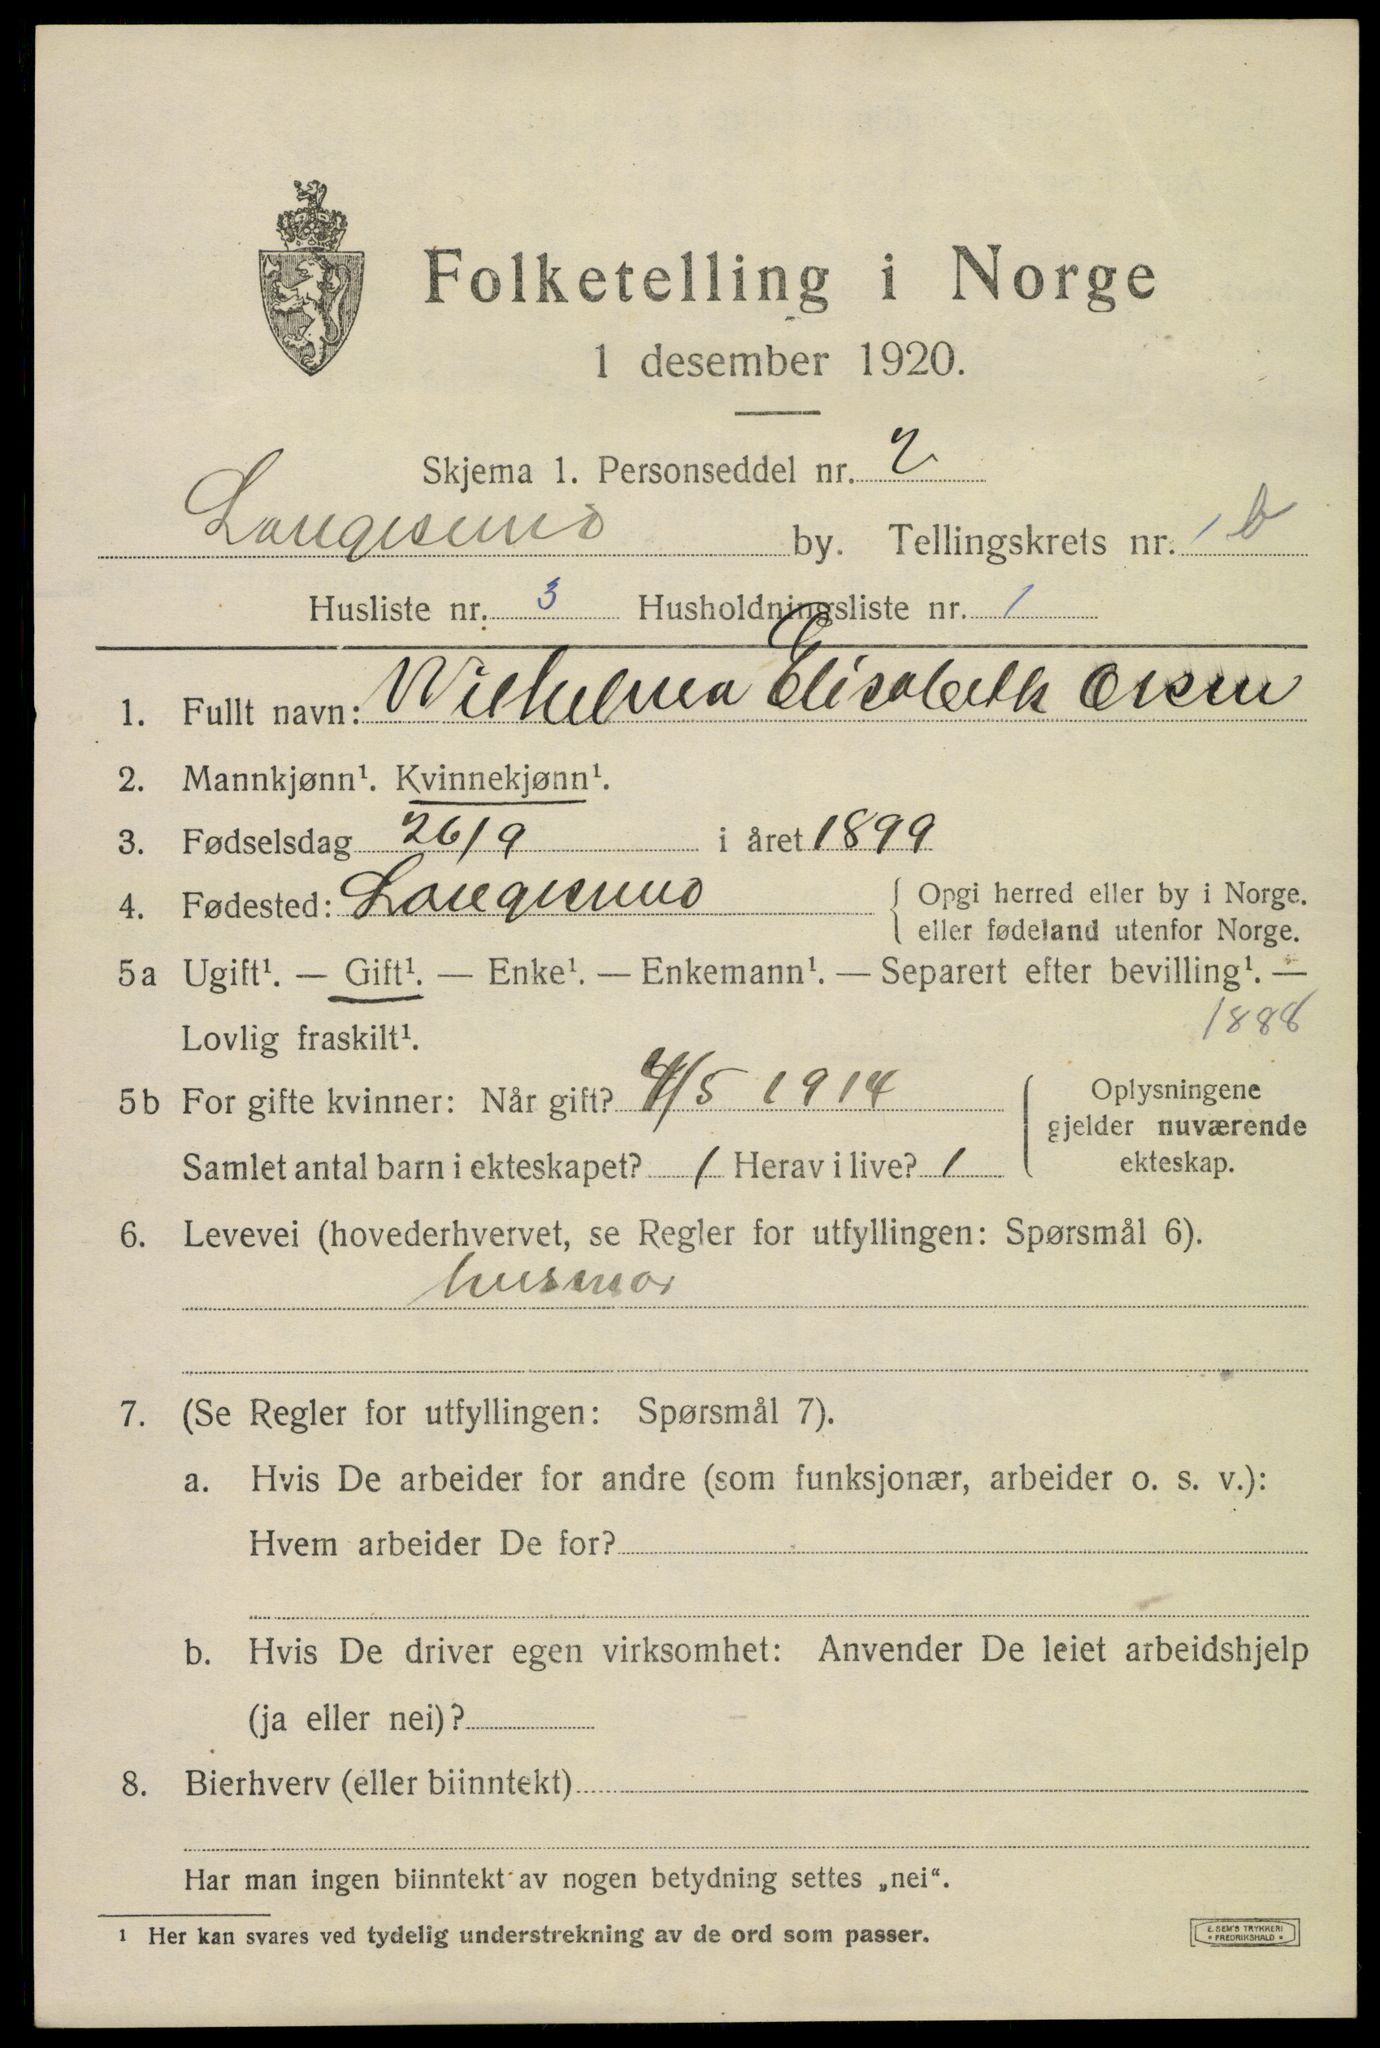 Folketelling i Norge
1 desember 1920.
Skjema 1. Personseddel nr. 2
Langesund by. Tellingskrets nr. 1 b
Husliste nr. 3 Husholdningsliste nr. 1
1. Fullt navn: Wilhelmea Elisabeth
2. Mannkjønn¹. Kvinnekjønn¹.
3. Fødselsdag 26/9 i året 1899
4. Fødested: Langesund { Opgi herred eller by i Norge.
eller fødeland utenfor Norge.
5a Ugift¹. — Gift¹. — Enke¹. — Enkemann¹. — Separert efter bevilling¹. —
1888
Lovlig fraskilt¹.
5b For gifte kvinner: Når gift? 4/5 1914 { Oplysningene
gjelder nuværende
ekteskap.
Samlet antal barn i ekteskapet? 1 Herav i live? 1
6. Levevei (hovederhvervet, se Regler for utfyllingen: Spørsmål 6).
husmor
7. (Se Regler for utfyllingen: Spørsmål 7).
a. Hvis De arbeider for andre (som funksjonær, arbeider o. s. v.):
Hvem arbeider De for?
b. Hvis De driver egen virksomhet: Anvender De leiet arbeidshjelp
(ja eller nei)?
8. Bierhverv (eller biinntekt)
Har man ingen biinntekt av nogen betydning settes „nei“.
¹ Her kan svares ved tydelig understrekning av de ord som passer.
E. SEM'S TRYKKERI
* FREDRIKSHALD *